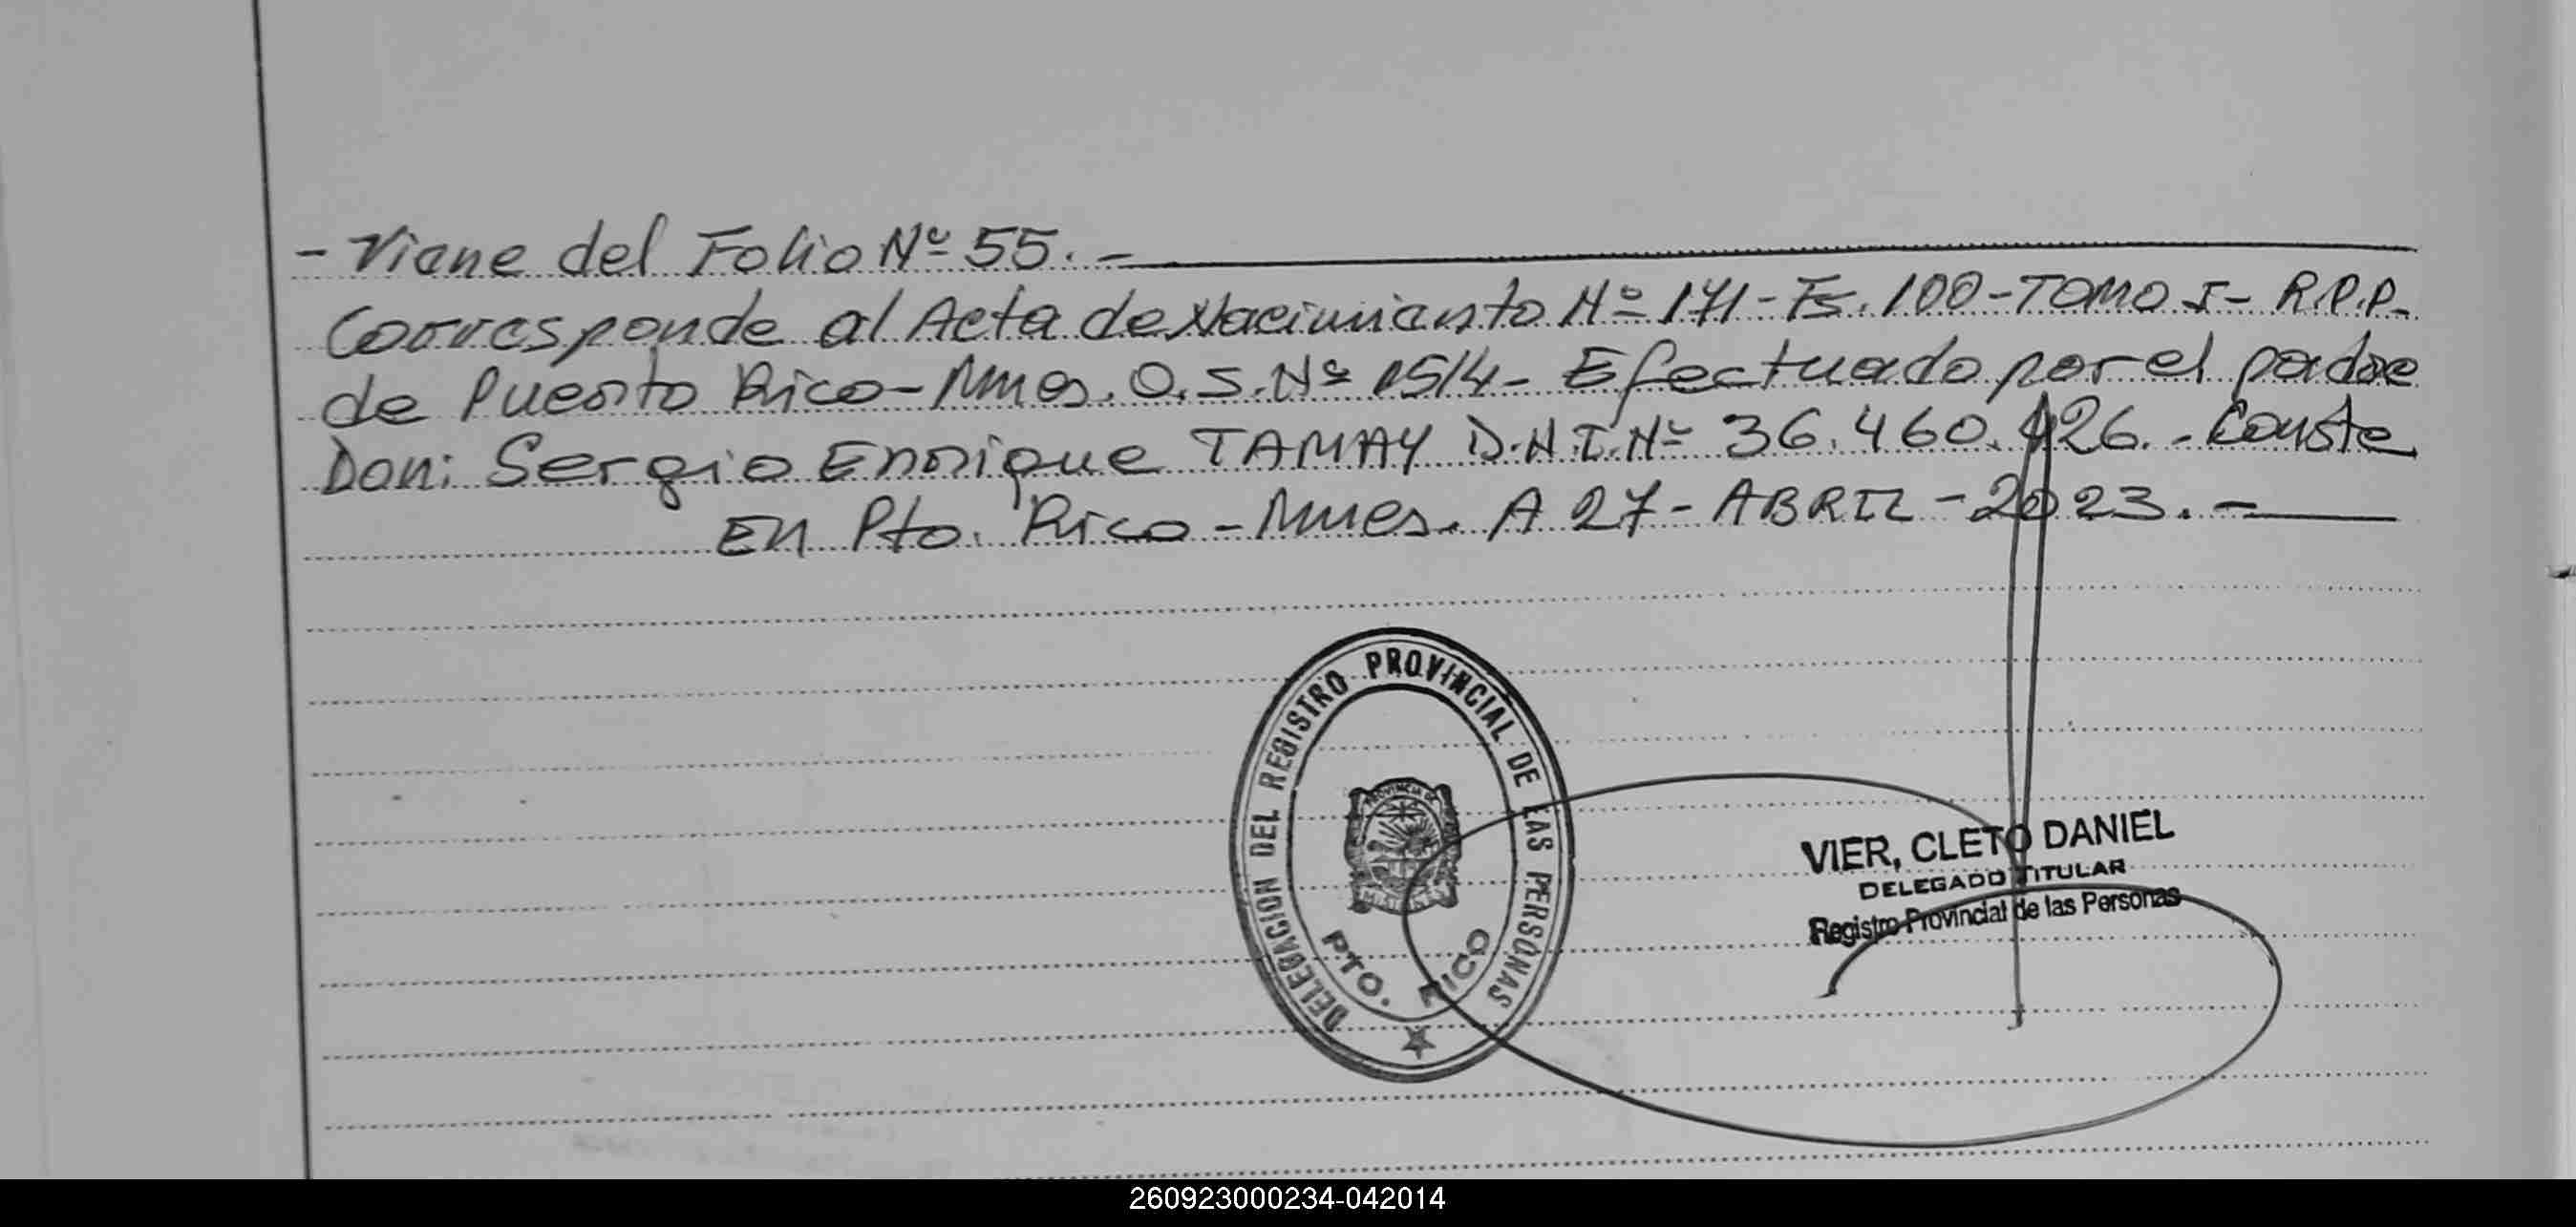 - Viene del Folio Nº 55. -
Corresponde al Acta de Nacimiento Nº 171 - Fs. 100 - TOMO I - R.P.P.
de Puerto Rico - Mnes. O.S. Nº 1514 - Efectuado por el padre
Don: Sergio Enrique TAMAY D.N.I. Nº 36.460.426. - Conste
EN Pto. Rico - Mnes. A 27 - ABRIL - 2023. -
DELEGACION DEL REGISTRO PROVINCIAL DE LAS PERSONAS
PROVINCIA DE
MISIONES
PTO. RICO
VIER, CLETO DANIEL
DELEGADO TITULAR
Registro Provincial de las Personas
260923000234-042014